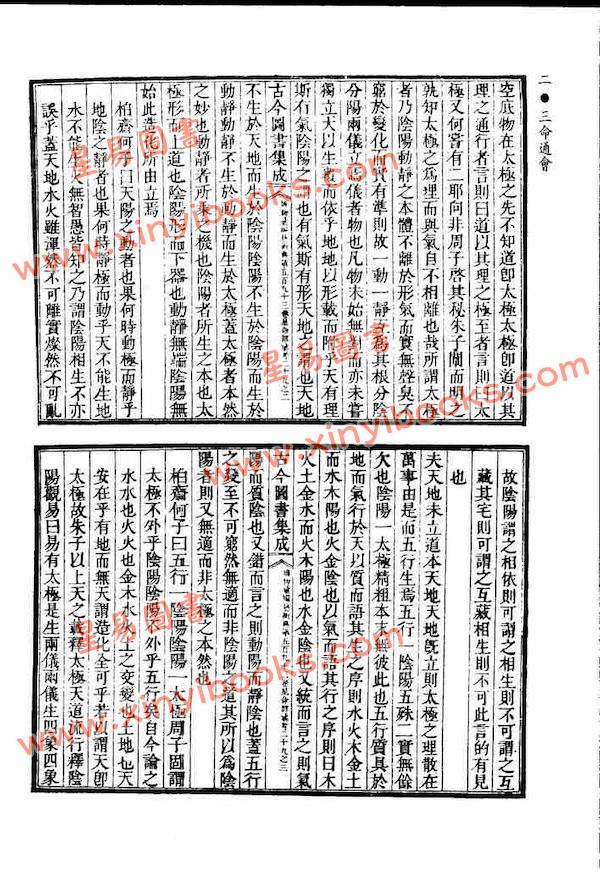 二●三命通會
空底物在太極之先不知道卽太極太極卽道以其
理之通行者言則曰道以其理之極至者言則曰太
極又何嘗有二耶向非周子啓其秘朱子闡而明之
孰知太極之爲理而與氣自不相離也哉所謂太極
者乃陰陽動靜之本體不離於形氣而實無聲臭不
窮於變化而實有準則故一動一靜互爲其根分陰
分陽兩儀立焉儀者物也凡物未始無對而亦未嘗
獨立天以生覆而依乎地地以形載而附乎天有理
斯有氣陰陽之謂也有氣斯有形天地之謂也天地
古今圖書集成
不生於天地而生於陰陽陰陽不生於陰陽而生於
動靜動靜不生於動靜而生於太極蓋太極者本然
之妙也動靜者所乘之機也陰陽者所生之本也太
極形而上道也陰陽形而下器也動靜無端陰陽無
始此造化所由立焉
柏齋何子曰天陽之動者也果何時動極而靜乎
地陰之靜者也果何時靜極而動乎天不能生地
水不能生火無智愚皆知之乃謂陰陽相生不亦
誤乎蓋天地水火雖渾然不可離實燦然不可亂
故陰陽謂之相依則可謂之相生則不可謂之互
藏其宅則可謂之互藏相生則不可此言的有見
也
夫天地未立道本天地天地旣立則太極之理散在
萬事由是而五行生焉五行一陰陽五殊二實無餘
欠也陰陽一太極精粗本末無彼此也五行質具於
地而氣行於天以質而語其生之序則水火木金土
而水木陽也火金陰也以氣而語其行之序則曰木
火土金水而火木陽也水金陰也又統而言之則氣
古今圖書集成
陽而質陰也又錯而言之則動陽而靜陰也蓋五行
之變至不可窮然無適而非陰陽之道其所以爲陰
陽者則又無適而非太極之本然也
柏齋何子曰五行一陰陽陰陽一太極周子固謂
太極不外乎陰陽陰陽不外乎五行矣自今論之
水水也火火也金木水火土之交變也土地也天
安在乎有地而無天謂造化全可乎若以謂天卽
太極故朱子以上天之載釋太極天道流行釋陰
陽觀易曰易有太極是生兩儀兩儀生四象四象
星易圖書
www.xinyibooks.com
星易圖書
www.xinyibooks.com
星易圖書
www.xinyibooks.com
星易圖書
www.xinyibooks.com